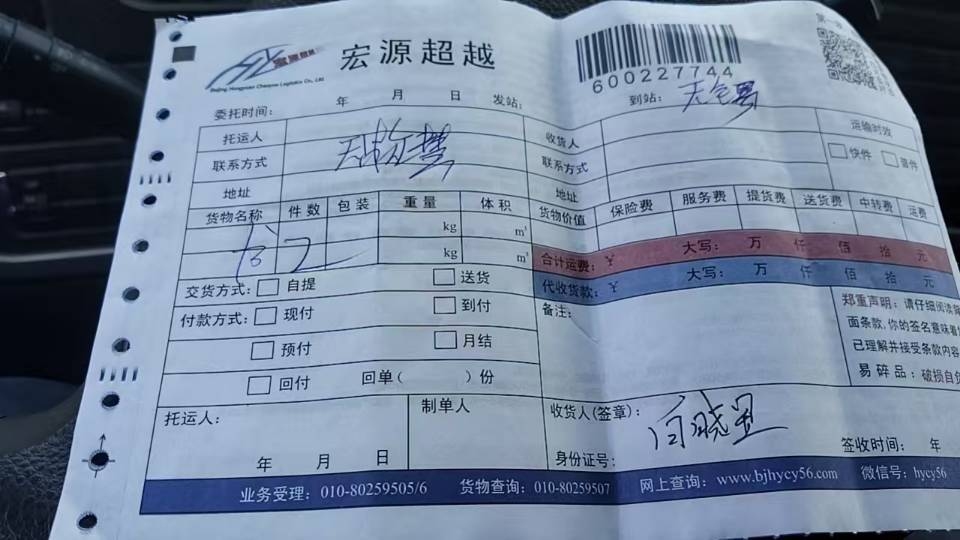 宏源超越
Beijing Hongyuan Chaoyue Logistics Co., Ltd
600227744
委托时间： 年 月 日 发站： 到站：
托运人 收货人 运输时效
联系方式 联系方式 快件 普件
地址 地址
货物名称 件数 包装 重量 体积 货物价值 保险费 服务费 提货费 送货费 中转费 运费
kg m³
kg m³ 合计运费：¥ 大写： 万 仟 佰 拾 元
代收货款：¥ 大写： 万 仟 佰 拾 元
交货方式： 自提 送货 备注：
付款方式： 现付 到付
预付 月结
回付 回单（ ）份
郑重声明：请仔细阅读
面条款,你的签名意味着
已理解并接受条款内容
易碎品：破损自负
托运人： 制单人 收货人(签章)：
年 月 日 身份证号： 签收时间： 年
业务受理：010-80259505/6 货物查询：010-80259507 网上查询：www.bjhycy56.com 微信号：hycy56